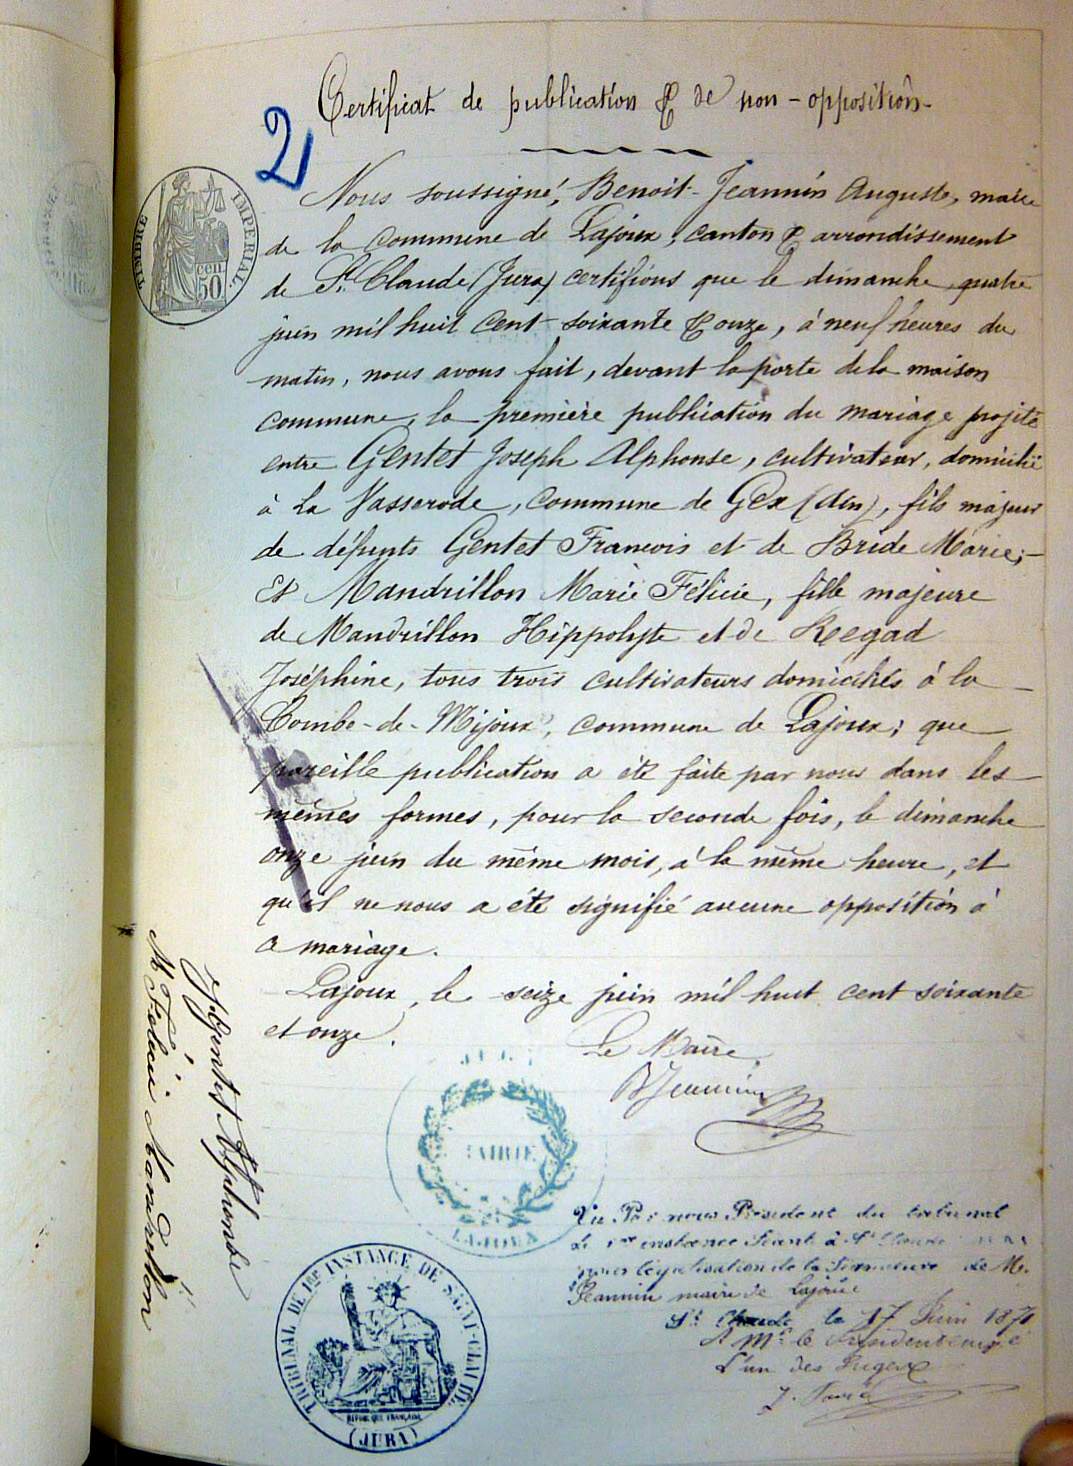 Certificat de publication & de non-opposition.
2
Nous soussigné, Benoit-Jeannin Auguste, maire
de la commune de Lajoux, canton & arrondissement
de St. Claude (Jura) certifions que le dimanche quatre
juin mil huit cent soixante & onze, à neuf heures du
matin, nous avons fait, devant la porte de la maison
commune, la première publication du mariage projeté
entre Gentet Joseph Alphonse, cultivateur, domicilié
à La Vasserode, commune de Gex (Ain), fils majeur
de défunts Gentet Francois et de Bride Marie;-
Et Mandrillon Marie Félicie, fille majeure
de Mandrillon Hippolyte et de Regad
Joséphine, tous trois cultivateurs domiciliés à la
Combe-de-Mijoux, commune de Lajoux; que
pareille publication a été faite par nous dans les
mêmes formes, pour la seconde fois, le dimanche
onze juin du même mois, à la même heure, et
qu'il ne nous a été signifié aucune opposition à
ce mariage.
Lajoux, le seize juin mil huit cent soixante
et onze.
Le Maire,
BJeannin
TIMBRE IMPERIAL.
50 cen
MAIRIE
LAJOUX
Vu Par nous Président du tribunal
de 1re instance séant à St Claude
pour légalisation de la signature de M.
Jeannin maire de Lajoux
St Claude le 17 Juin 1871
Mr le Président
L'un des Juges
TRIBUNAL DE 1RE INSTANCE DE SAINT-CLAUDE.
REPUBLIQUE FRANÇAISE
(JURA)
Gentet Alphonse
M Felicie Mandrillon